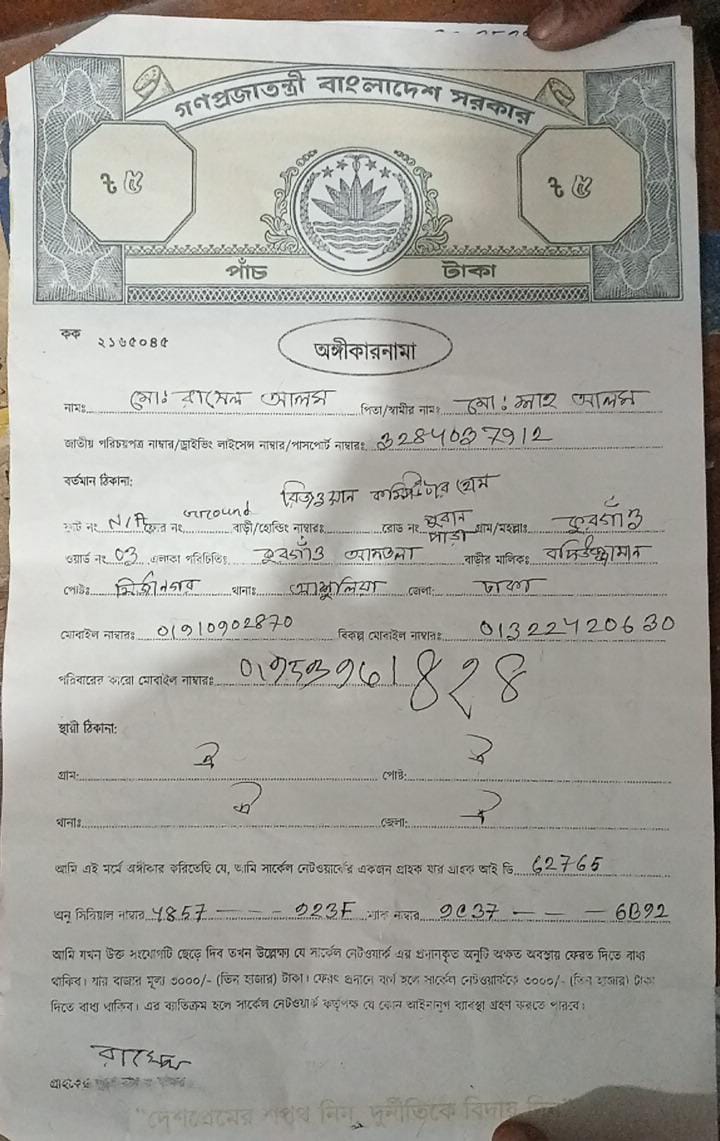 গণপ্রজাতন্ত্রী বাংলাদেশ সরকার
৳ ৫ ৳ ৫
পাঁচ টাকা
কক ২১৬৫০৪৫
অঙ্গীকারনামা
নামঃ মোঃ রাসেল আলম পিতা/স্বামীর নামঃ মোঃ আলম
জাতীয় পরিচয়পত্র নাম্বার/ড্রাইভিং লাইসেন্স নাম্বার/পাসপোর্ট নাম্বারঃ 3284037912
বর্তমান ঠিকানা:
রিজওয়ান
ফ্লাট নং N/A ফ্লোর নং Ground বাড়ী/হোল্ডিং নাম্বারঃ রোড নং পুরান পাড়া গ্রাম/মহল্লাঃ কুরগাঁও
ওয়ার্ড নং 03 এলাকা পরিচিতিঃ কুরগাঁও আমতলা বাড়ীর মালিকঃ
পোষ্টঃ মির্জানগর থানাঃ আশুলিয়া জেলা: ঢাকা
মোবাইল নাম্বারঃ 01910902870 বিকল্প মোবাইল নাম্বারঃ 01322420630
পরিবারের কারো মোবাইল নাম্বারঃ
স্থায়ী ঠিকানা:
গ্রাম: ঐ পোষ্ট: ঐ
থানাঃ ঐ জেলা: ঐ
আমি এই মর্মে অঙ্গীকার করিতেছি যে, আমি সার্কেল নেটওয়ার্কের একজন গ্রাহক যার গ্রাহক আই ডি 62765
অনু সিরিয়াল নাম্বার 4857 - - - 923F ম্যাক নাম্বার 9C37 - - - 6B92
আমি যখন উক্ত সংযোগটি ছেড়ে দিব তখন উল্লেক্ষ্য যে সার্কেল নেটওয়ার্ক এর প্রদানকৃত অনুটি অক্ষত অবস্থায় ফেরত দিতে বাধ্য
থাকিব। যার বাজার মূল্য ৩০০০/- (তিন হাজার) টাকা। ফেরৎ প্রদানে ব্যর্থ হলে সার্কেল নেটওয়ার্ককে ৩০০০/- (তিন হাজার) টাকা
দিতে বাধ্য থাকিব। এর ব্যাতিক্রম হলে সার্কেল নেটওয়ার্ক কর্তৃপক্ষ যে কোন আইনানুগ ব্যাবস্থা গ্রহণ করতে পারবে।
রাসেল
গ্রাহকের
"দেশপ্রেমের শপথ নিন, দুর্নীতিকে বিদায় দিন"